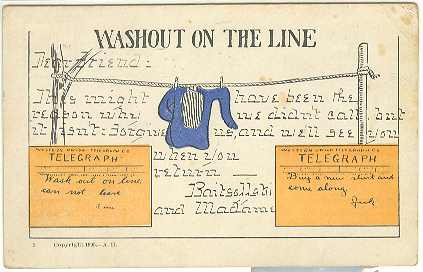 WASHOUT ON THE LINE
Dear Friend:
This might have been the
reason why we didn't call, but
it isn't: Forgive us, and we'll see you
when you
return —
and Madame
WESTERN UNION TELEGRAPH CO
TELEGRAPH
Wash out on line
can not leave
WESTERN UNION TELEGRAPH CO
TELEGRAPH
Buy a new shirt and
come along.
Jack
Copyright 1906